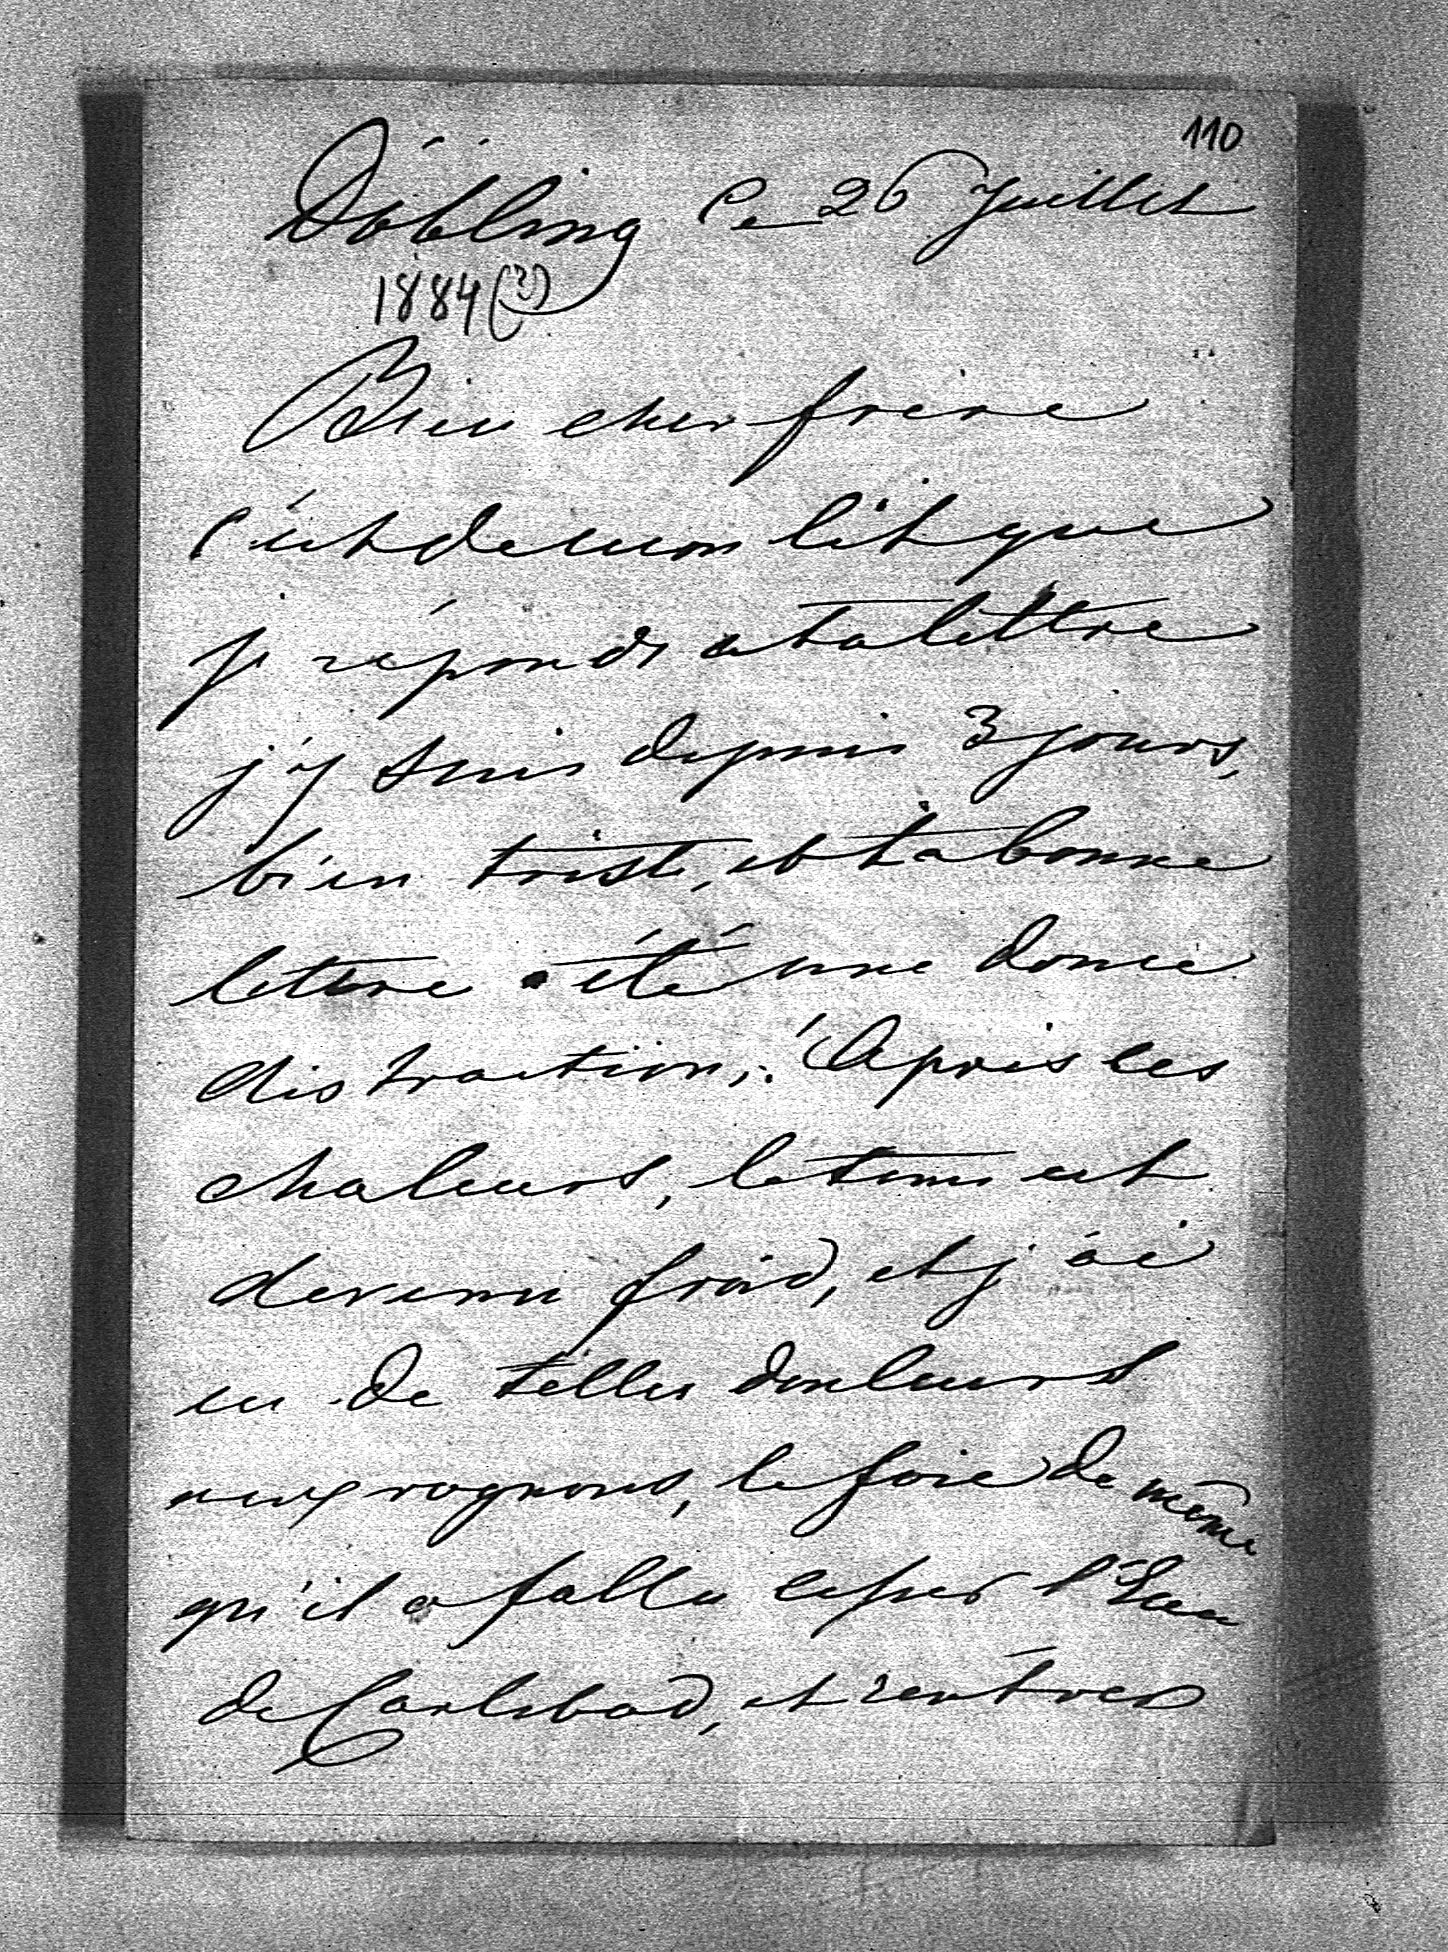 110
Döbling le 26 Juillet
1884 (?)
Bien cher frère
c'est de mon lit que
je réponds a ta lettre
j'y suis depuis 3 jours,
bien triste, et ta bonne
lettre a été une douce
distraction,! Après les
chaleurs, le tems est
devenu froid, et j'ai
eu de telles douleurs
aux rognons, le foie de même
qu'il a fallu cesser l'Eau
de Carlsbad, et rentrer